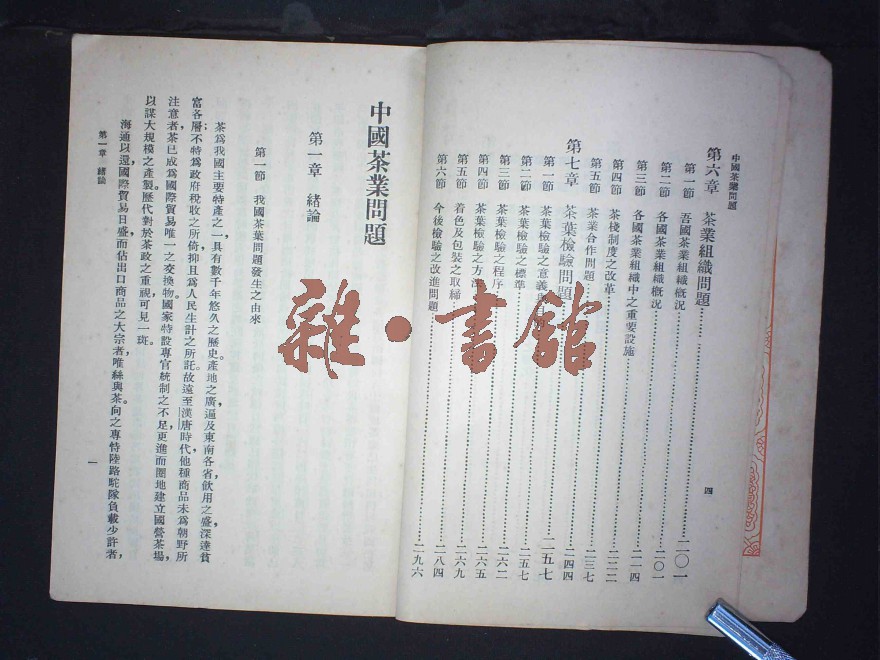 中國茶業問題
第六章 茶業組織問題……二〇一
第一節 吾國茶業組織概況……二〇一
第二節 各國茶業組織概況……二一四
第三節 各國茶業組織中之重要設施……二二二
第四節 茶棧制度之改革……二三七
第五節 茶業合作問題……二四四
第七章 茶葉檢驗問題……二五七
第一節 茶葉檢驗之意義與……二五七
第二節 茶葉檢驗之標準……二六二
第三節 茶葉檢驗之程序……二六五
第四節 茶葉檢驗之方法……二六九
第五節 着色及包裝之取締……二八四
第六節 今後檢驗之改進問題……二九六
四
中國茶業問題
第一章 緒論
第一節 我國茶葉問題發生之由來
茶爲我國主要特產之一,具有數千年悠久之歷史。產地之廣,遍及東南各省,飲用之盛,深達貧
富各層;不特爲政府稅收之所倚,抑且爲人民生計之所託。故遠至漢唐時代,他種商品未爲朝野所
注意者,茶已成爲國際貿易唯一之交換物。國家特設專官統制之不足,更進而圈地建立國營茶場,
以謀大規模之產製。歷代對於茶政之重視,可見一斑。
海通以還,國際貿易日盛,而佔出口商品之大宗者,唯絲與茶。向之專恃陸路駝隊負載少許者,
第一章 緒論
一
雜·書館